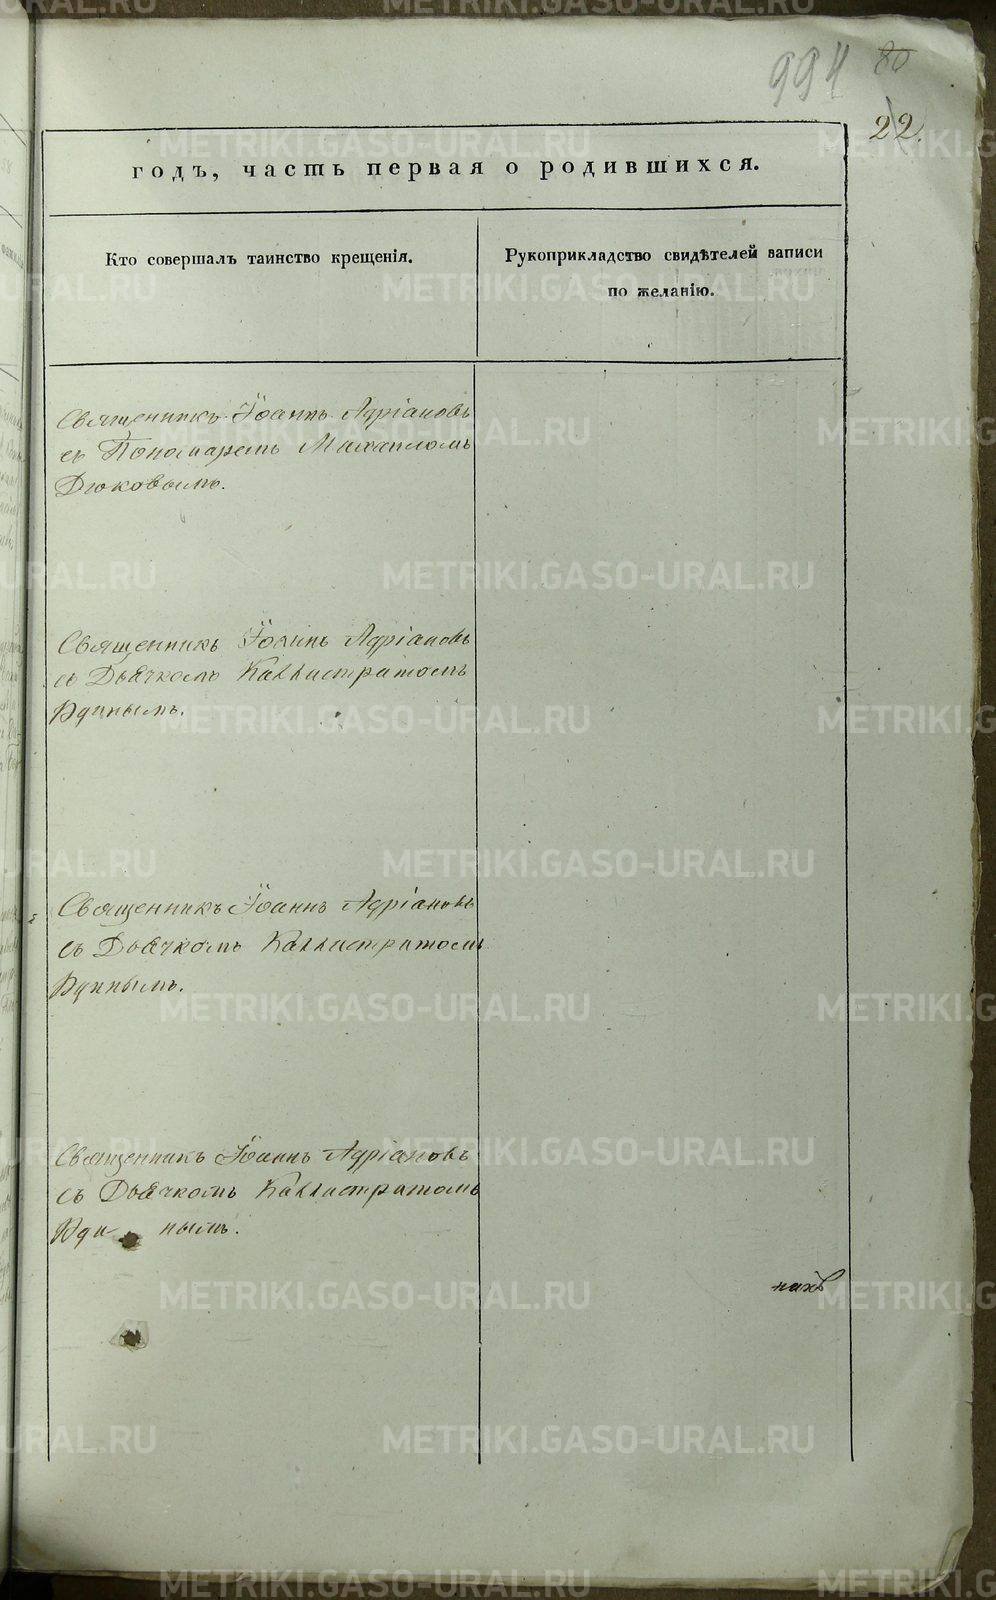 994 80
22.
годъ, часть первая о родившихся.
Кто совершалъ таинство крещенія.
Рукоприкладство свидѣтелей записи
по желанію.
Священникъ Іоаннъ Адріановъ
съ Пономаремъ Михаиломъ
Дюковымъ.
Священникъ Іоаннъ Адріановъ
съ Дьячкомъ Каллистратомъ
Священникъ Іоаннъ Адріановъ
съ Дьячкомъ Каллистратомъ
Священникъ Іоаннъ Адріановъ
съ Дьячкомъ Каллистратомъ
METRIKI.GASO-URAL.RU